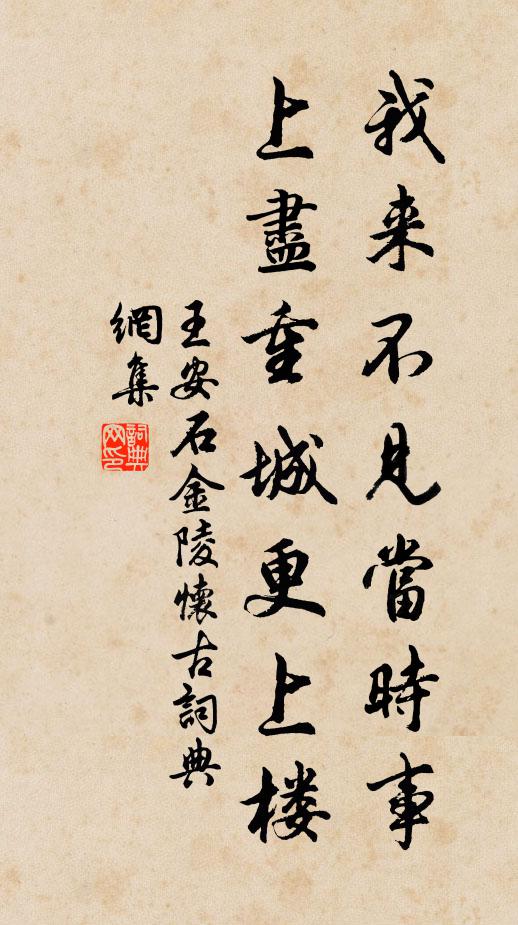 我来不見當時事
上盡重城更上楼
王安石金陵懷古詞典
網集
詞典
网印